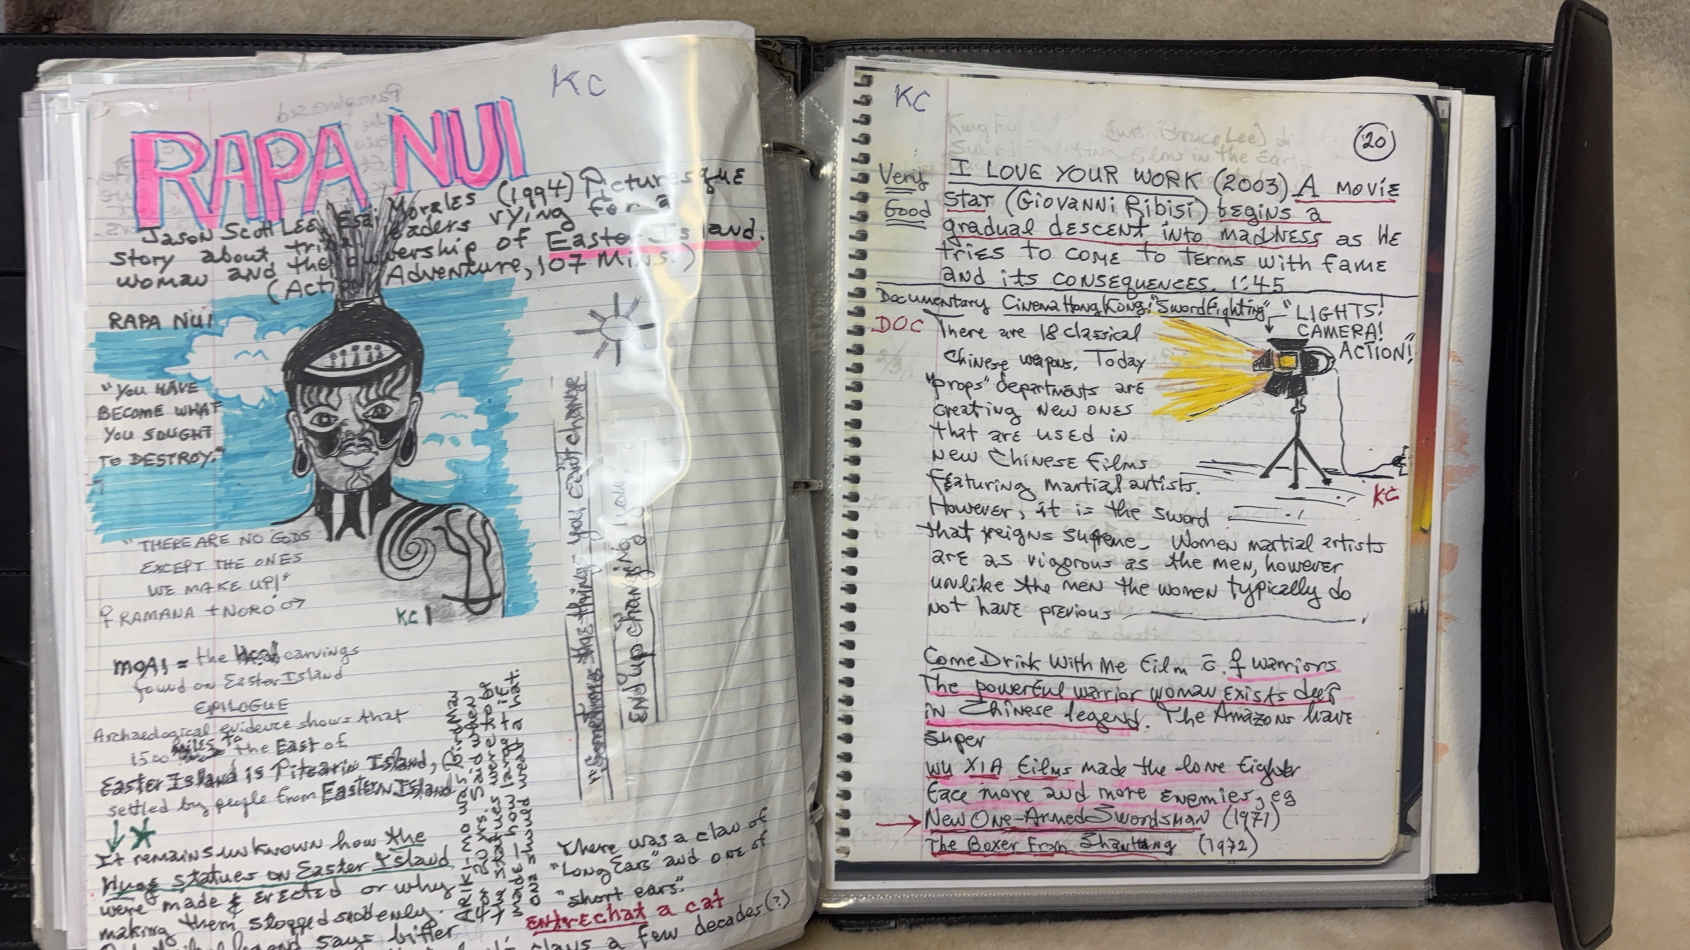 KC
RAPA NUI
Jason Scott Lee, Esai Morales (1994) Picturesque
story about tribal leaders vying for a
woman and the ownership of Easter Island.
(Action Adventure, 107 Mins.)
RAPA NUI
"YOU HAVE
BECOME WHAT
YOU SOUGHT
TO DESTROY."
"THERE ARE NO GODS
EXCEPT THE ONES
WE MAKE UP!"
♀ RAMANA + NORO ♂
KC
MOAI = the Head carvings
found on Easter Island
EPILOGUE
Archaeological evidence shows that
1500 miles to the East of
Easter Island is Pitcairn Island,
settled by people from Eastern Island.
It remains unknown how the
Huge statues on Easter Island
were made & erected or why
making them stopped suddenly.
says bitter
ARIKI-MO was birdman
for 20 yrs. Said when
the statues were to be
made - how large + if
one should wear a hat.
"Sometimes the things you can't change
END up changing you"
There was a clan of
"Long Ears" and one of
"short ears".
Entrechat a cat
clans a few decades(?)
KC
20
Very
Good
I LOVE YOUR WORK (2003) A MOVIE
Star (Giovanni Ribisi) begins a
gradual descent into madness as HE
tries to come to terms with fame
and its consequences. 1:45
Documentary Cinema Hong Kong: "Sword Fighting"
"LIGHTS!
CAMERA!
ACTION!"
DOC
There are 18 classical
Chinese weapons. Today
"props" departments are
creating new ones
that are used in
new Chinese films
featuring martial artists.
However, it is the sword
that reigns supreme. Women martial artists
are as vigorous as the men, however
unlike the men the women typically do
not have previous
KC
Come Drink With Me Film c̄ ♀ warriors
The powerful warrior woman exists deep
in Chinese legend. The Amazons have
super
WU XIA Films made the lone fighter
face more and more enemies, eg
New One-Armed Swordsman (1971)
The Boxer From Shantung (1972)